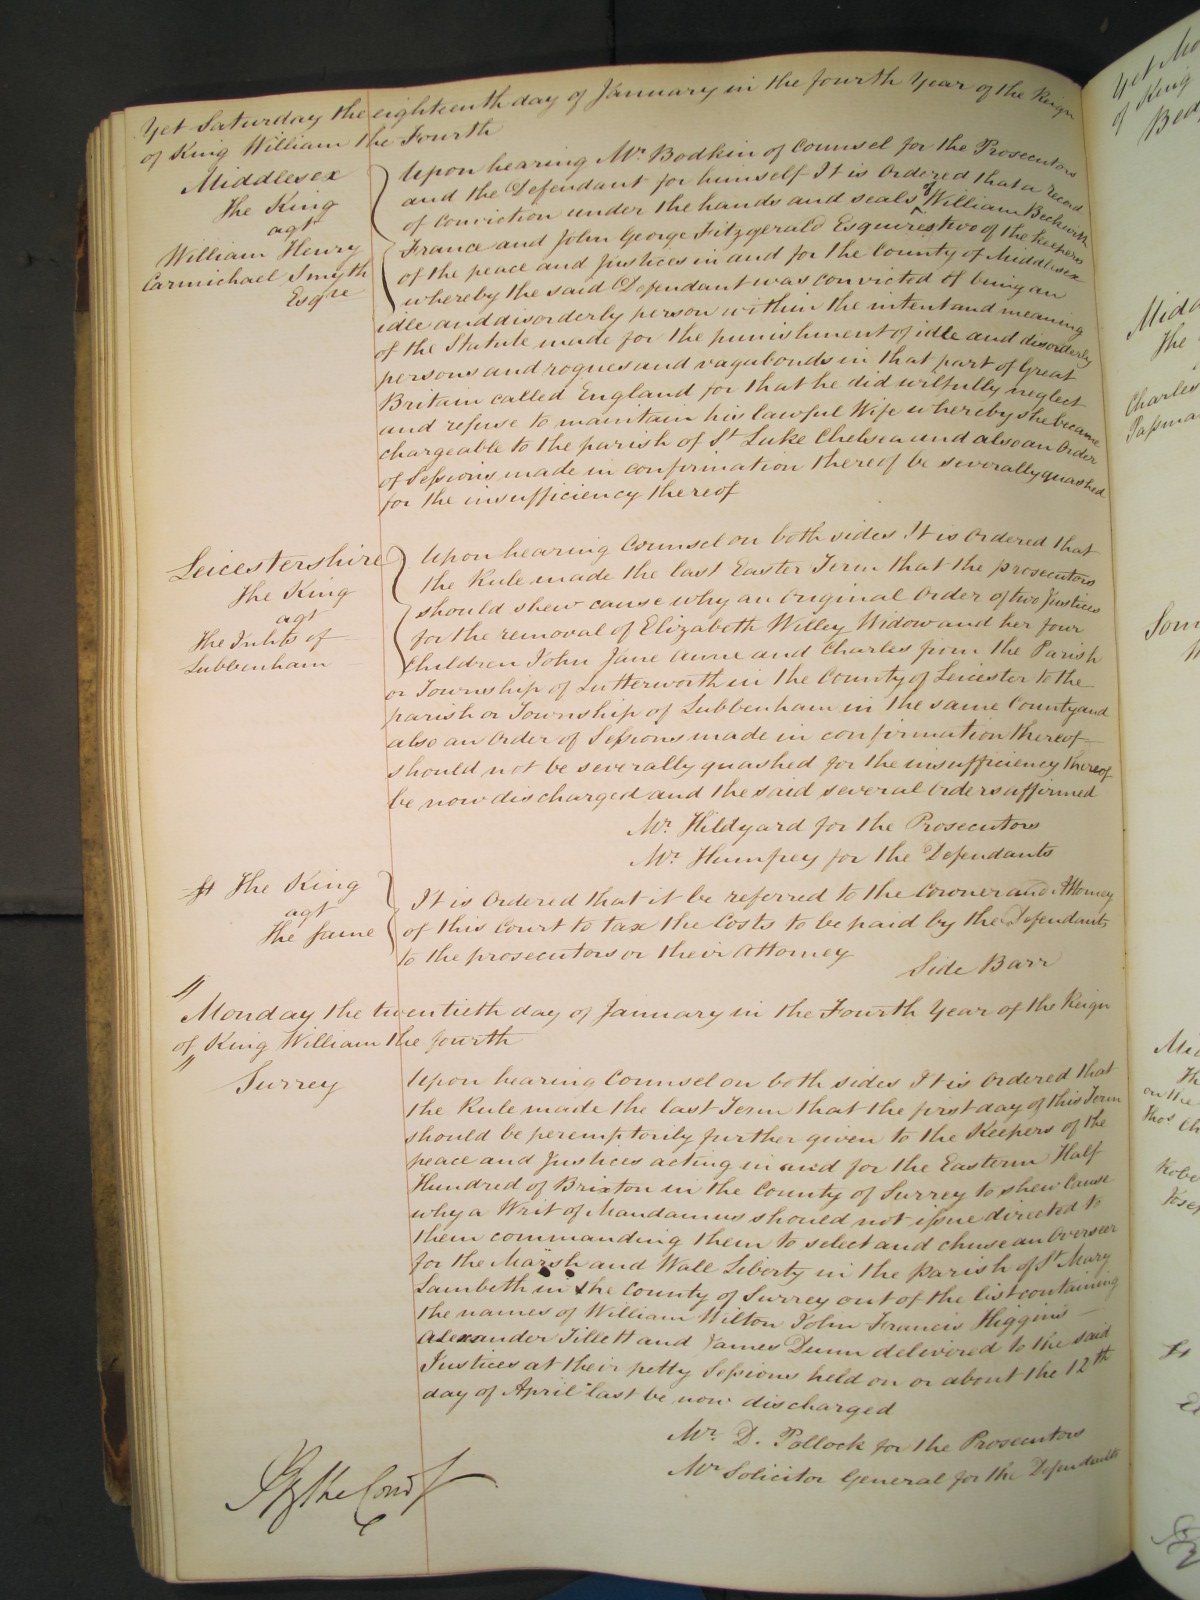 Yet Saturday the eighteenth day of January in the fourth Year of the Reign
of King William the Fourth
Middlesex
The King
agt
William Henry
Carmichael Smyth
Esqre
Upon hearing Mr. Bodkin of Counsel for the Prosecutors
and the Defendant for himself It is Ordered that a record
of conviction under the hands and seals of William Beckwith
France and John George Fitzgerald Esquires two of the keepers
of the peace and Justices in and for the County of Middlesex
whereby the said Defendant was convicted of being an
idle and disorderly person within the intent and meaning
of the Statute made for the punishment of idle and disorderly
persons and rogues and vagabonds in that part of Great
Britain called England for that he did wilfully neglect
and refuse to maintain his lawful Wife whereby she became
chargeable to the parish of St Luke Chelsea and also an Order
of Sessions made in confirmation thereof be severally quashed
for the insufficiency thereof
Leicestershire
The King
agt
The Inhts of
Lubbenham
Upon hearing Counsel on both sides It is Ordered that
the Rule made the last Easter Term that the prosecutors
should shew cause why an Original Order of two Justices
for the removal of Elizabeth Willey Widow and her four
Children John Jane Anne and Charles from the Parish
or Township of Lutterworth in the County of Leicester to the
parish or Township of Lubbenham in the same County and
also an Order of Sessions made in confirmation thereof
should not be severally quashed for the insufficiency thereof
be now discharged and the said several Orders affirmed
Mr. Hildyard for the Prosecutors
Mr. Humfrey for the Defendants
The King
agt
The Same
It is Ordered that it be referred to the Coroner and Attorney
of this Court to tax the Costs to be paid by the Defendants
to the prosecutors or their Attorney
Side Barr
Monday the twentieth day of January in the Fourth Year of the Reign
of King William the fourth
Surrey
Upon hearing Counsel on both sides It is Ordered that
the Rule made the last Term that the first day of this Term
should be peremptorily further given to the Keepers of the
peace and Justices acting in and for the Eastern Half
Hundred of Brixton in the County of Surrey to shew Cause
why a Writ of Mandamus should not issue directed to
them commanding them to select and chuse an Overseer
for the Marsh and Wall Liberty in the parish of St Mary
Lambeth in the County of Surrey out of the list containing
the names of William Wilton John Francis Higgins
Alexander Tillett and James Dunn delivered to the said
Justices at their petty Sessions held on or about the 12th
day of April last be now discharged
Mr. D. Pollock for the Prosecutors
Mr Solicitor General for the Defendants
By the Court